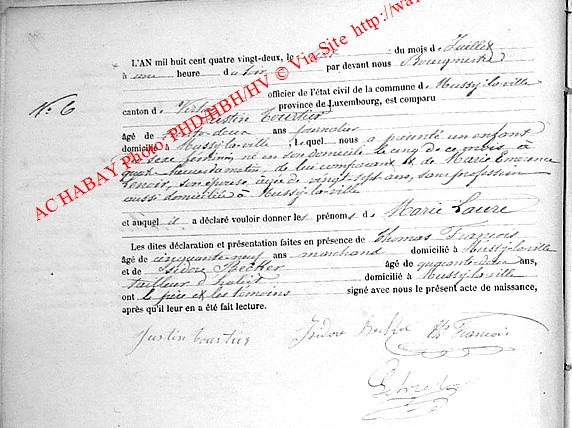 L'AN mil huit cent quatre vingt-deux, le du mois de Juillet
à une heure du soir par devant nous Bourgmestre
officier de l'état civil de la commune de Mussy-la-ville
No. 6
canton de province de Luxembourg, est comparu
Justin Tourtier
âgé de ans journalier
domicilié à Mussy-la-ville, Lequel nous a présenté un enfant
de sexe féminin, né en son domicile le cinq de ce mois, à
heures du matin, de lui comparant et de Marie
Lenoir, son épouse, âgée de vingt-sept ans, sans profession
aussi domiciliée à Mussy-la-ville
et auquel il a déclaré vouloir donner les prénoms de Marie Laure
Les dites déclaration et présentation faites en présence de Thomas François
âgé de cinquante-neuf ans marchand domicilié à Mussy-la-ville
et de Isidore Becker âgé de ans,
tailleur d'habits domicilié à Mussy-la-ville
ont le père et les témoins signé avec nous le présent acte de naissance,
après qu'il leur en a été fait lecture.
Justin Tourtier Isidore Becker Th François
AC HABAY Photo, PHD/HBH/HV © Via Site http://wa